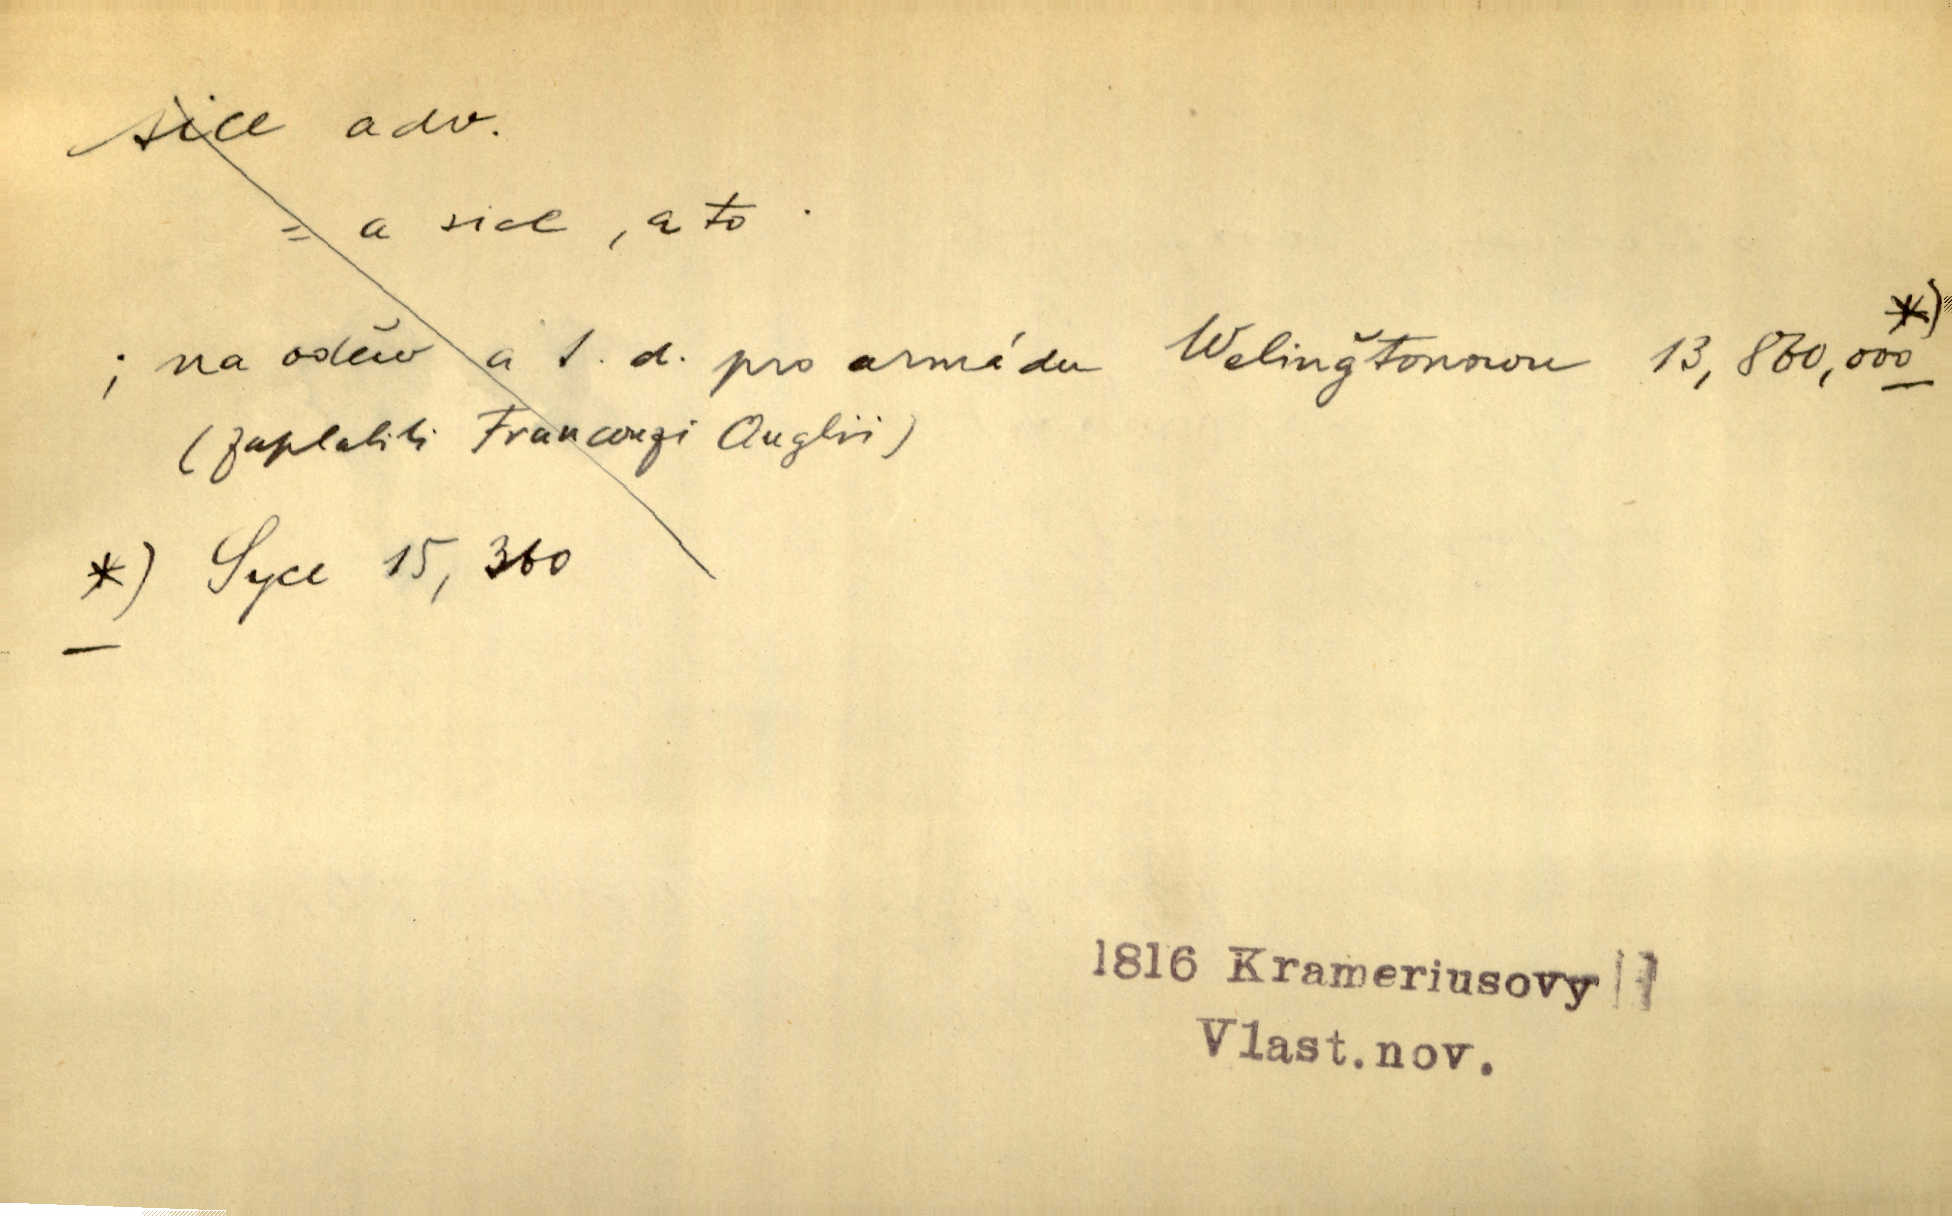 sice adv.
= a sice, a to
; na oděw a t. d. pro armádu Welinğtonowu 13,860,000 *)
(zaplatili Francouzi Anglii)
*) Syce 15,360
1816 Krameriusovy
Vlast.nov.